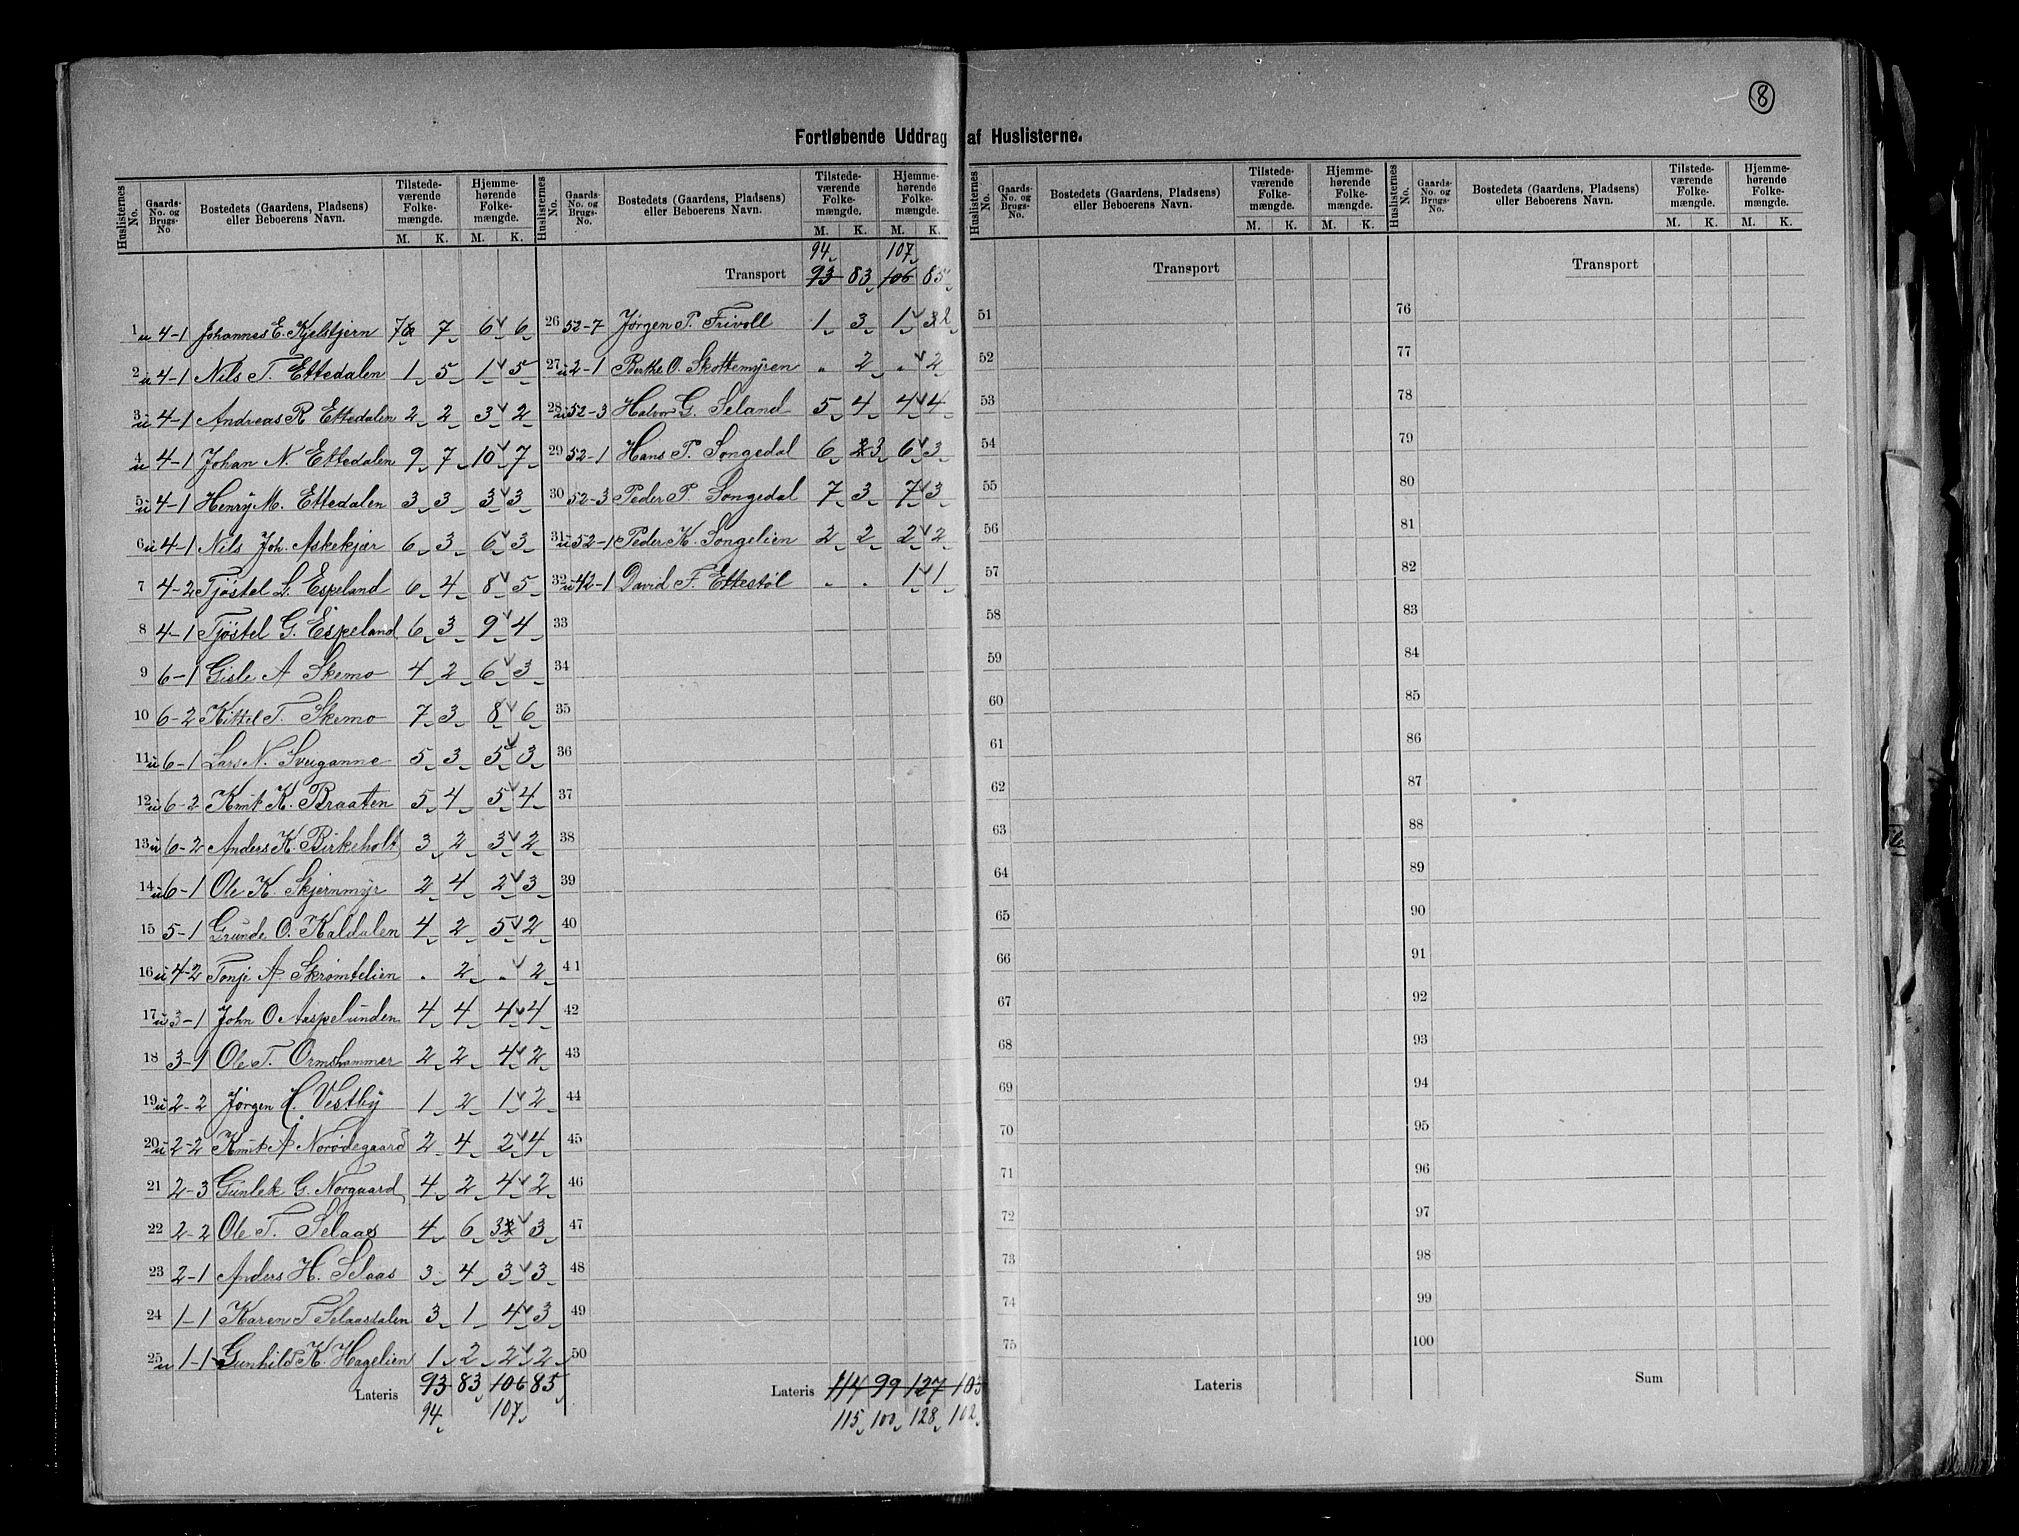 8
Fortløbende Uddrag af Huslisterne.
Huslisternes No. Gaards-No. og Brugs-No. Bostedets (Gaardens, Pladsen) eller Beboerens Navn. Tilstede-værende Folke-mængde. M. K. Hjemme-hørende Folke-mængde. M. K.
1 u 4-1 Johannes E. Kjelstjern 7 7 6 6
2 u 4-1 Nils T. Ettedalen 1 5 1 5
3 u 4-1 Andreas R Ettedalen 2 2 3 2
4 u 4-1 Johan N. Ettedalen 9 7 10 7
5 u 4-1 Henry M. Ettedalen 3 3 3 3
6 u 4-1 Nils Joh. Askekjær 6 3 6 3
7 4-2 Tjøstel L. Espeland 6 4 8 5
8 4-1 Tjøstel G. Espeland 6 3 9 4
9 6-1 Gisle A Skemo 4 2 6 3
10 6-2 Kittel T. Skemo 7 3 8 6
11 u 6-1 Lars N. Sveiganne 5 3 5 3
12 u 6-2 Knut K. Braaten 5 4 5 4
13 u 6-2 Anders K. Birkeholt 3 2 3 2
14 u 6-1 Ole K. Skjernmyr 2 4 2 3
15 5-1 Grunde O. Kaldalen 4 2 5 2
16 u 4-2 Tonje A. Skrømtelien . 2 . 2
17 u 3-1 John O. Aaspelunden 4 4 4 4
18 3-1 Ole T. Ormshammer 2 2 4 2
19 u 2-2 Jørgen H. Vestby 1 2 1 2
20 u 2-2 Knut A Norødegaard 2 4 2 4
21 2-3 Gunlek G. Norgaard 4 2 4 2
22 2-2 Ole T. Selaas 4 6 3 3
23 2-1 Anders H. Selaas 3 4 3 3
24 1-1 Karen T Selaasdalen 3 1 4 3
25 u 1-1 Gunhild K. Hagelien 1 2 2 2
Lateris 93 83 106 85
94 107
Huslisternes No. Gaards-No. og Brugs-No. Bostedets (Gaardens, Pladsen) eller Beboerens Navn. Tilstede-værende Folke-mængde. M. K. Hjemme-hørende Folke-mængde. M. K.
94 107
Transport 93 83 106 85
26 52-7 Jørgen P. Trivoll 1 3 1 2
27 u 2-1 Berthe O. Skottemyren . 2 . 2
28 u 52-3 Halvor G. Seland 5 4 4 4
29 52-1 Hans P. Songedal 6 3 6 3
30 52-3 Peder P. Songedal 7 3 7 3
31 u 52-1 Peder K. Songelien 2 2 2 2
32 u 42-1 David F. Ettestøl . . 1 1
33
34
35
36
37
38
39
40
41
42
43
44
45
46
47
48
49
50
Lateris 114 99 127 103
115 100 128 102
Huslisternes No. Gaards-No. og Brugs-No. Bostedets (Gaardens, Pladsen) eller Beboerens Navn. Tilstede-værende Folke-mængde. M. K. Hjemme-hørende Folke-mængde. M. K.
Transport
51
52
53
54
55
56
57
58
59
60
61
62
63
64
65
66
67
68
69
70
71
72
73
74
75
Lateris
Huslisternes No. Gaards-No. og Brugs-No. Bostedets (Gaardens, Pladsen) eller Beboerens Navn. Tilstede-værende Folke-mængde. M. K. Hjemme-hørende Folke-mængde. M. K.
Transport
76
77
78
79
80
81
82
83
84
85
86
87
88
89
90
91
92
93
94
95
96
97
98
99
100
Sum